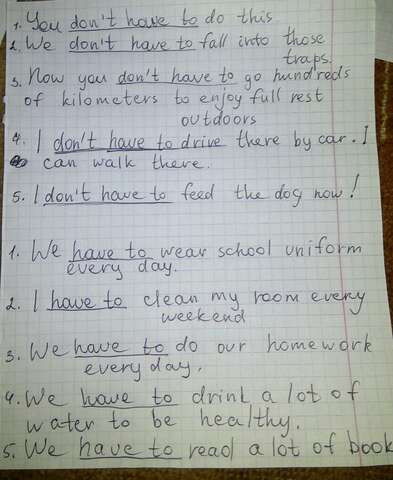 1. You don't have to do this
2. We don't have to fall into those
traps.
3. Now you don't have to go hundreds
of kilometers to enjoy full rest
outdoors
4. I don't have to drive there by car. I
can walk there.
5. I don't have to feed the dog now!
1. We have to wear school uniform
every day.
2. I have to clean my room every
weekend
3. We have to do our homework
every day.
4. We have to drink a lot of
water to be healthy.
5. We have to read a lot of book